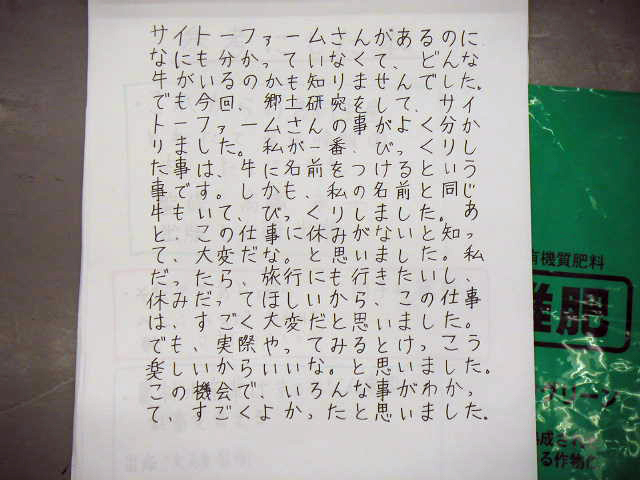 サイトーファームさんがあるのに
なにも分かっていなくて、どんな
牛がいるのかも知りませんでした。
でも今回、郷土研究をして、サイ
トーファームさんの事がよく分か
りました。私が一番、びっくりし
た事は、牛に名前をつけるという
事です。しかも、私の名前と同じ
牛もいて、びっくりしました。あ
と、この仕事に休みがないと知っ
て、大変だな。と思いました。私
だったら、旅行にも行きたいし、
休みだってほしいから、この仕事
は、すごく大変だと思いました。
でも、実際やってみるとけっこう
楽しいからいいな。と思いました。
この機会で、いろんな事がわかっ
て、すごくよかったと思いました。
有機質肥料
堆肥
グリーン
る作物